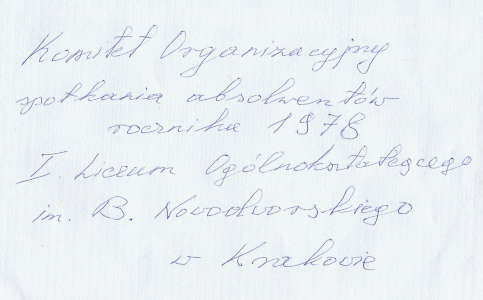 Komitet Organizacyjny
spotkania absolwentów
rocznika 1978
I. Liceum Ogólnokształcącego
im. B. Nowodworskiego
w Krakowie